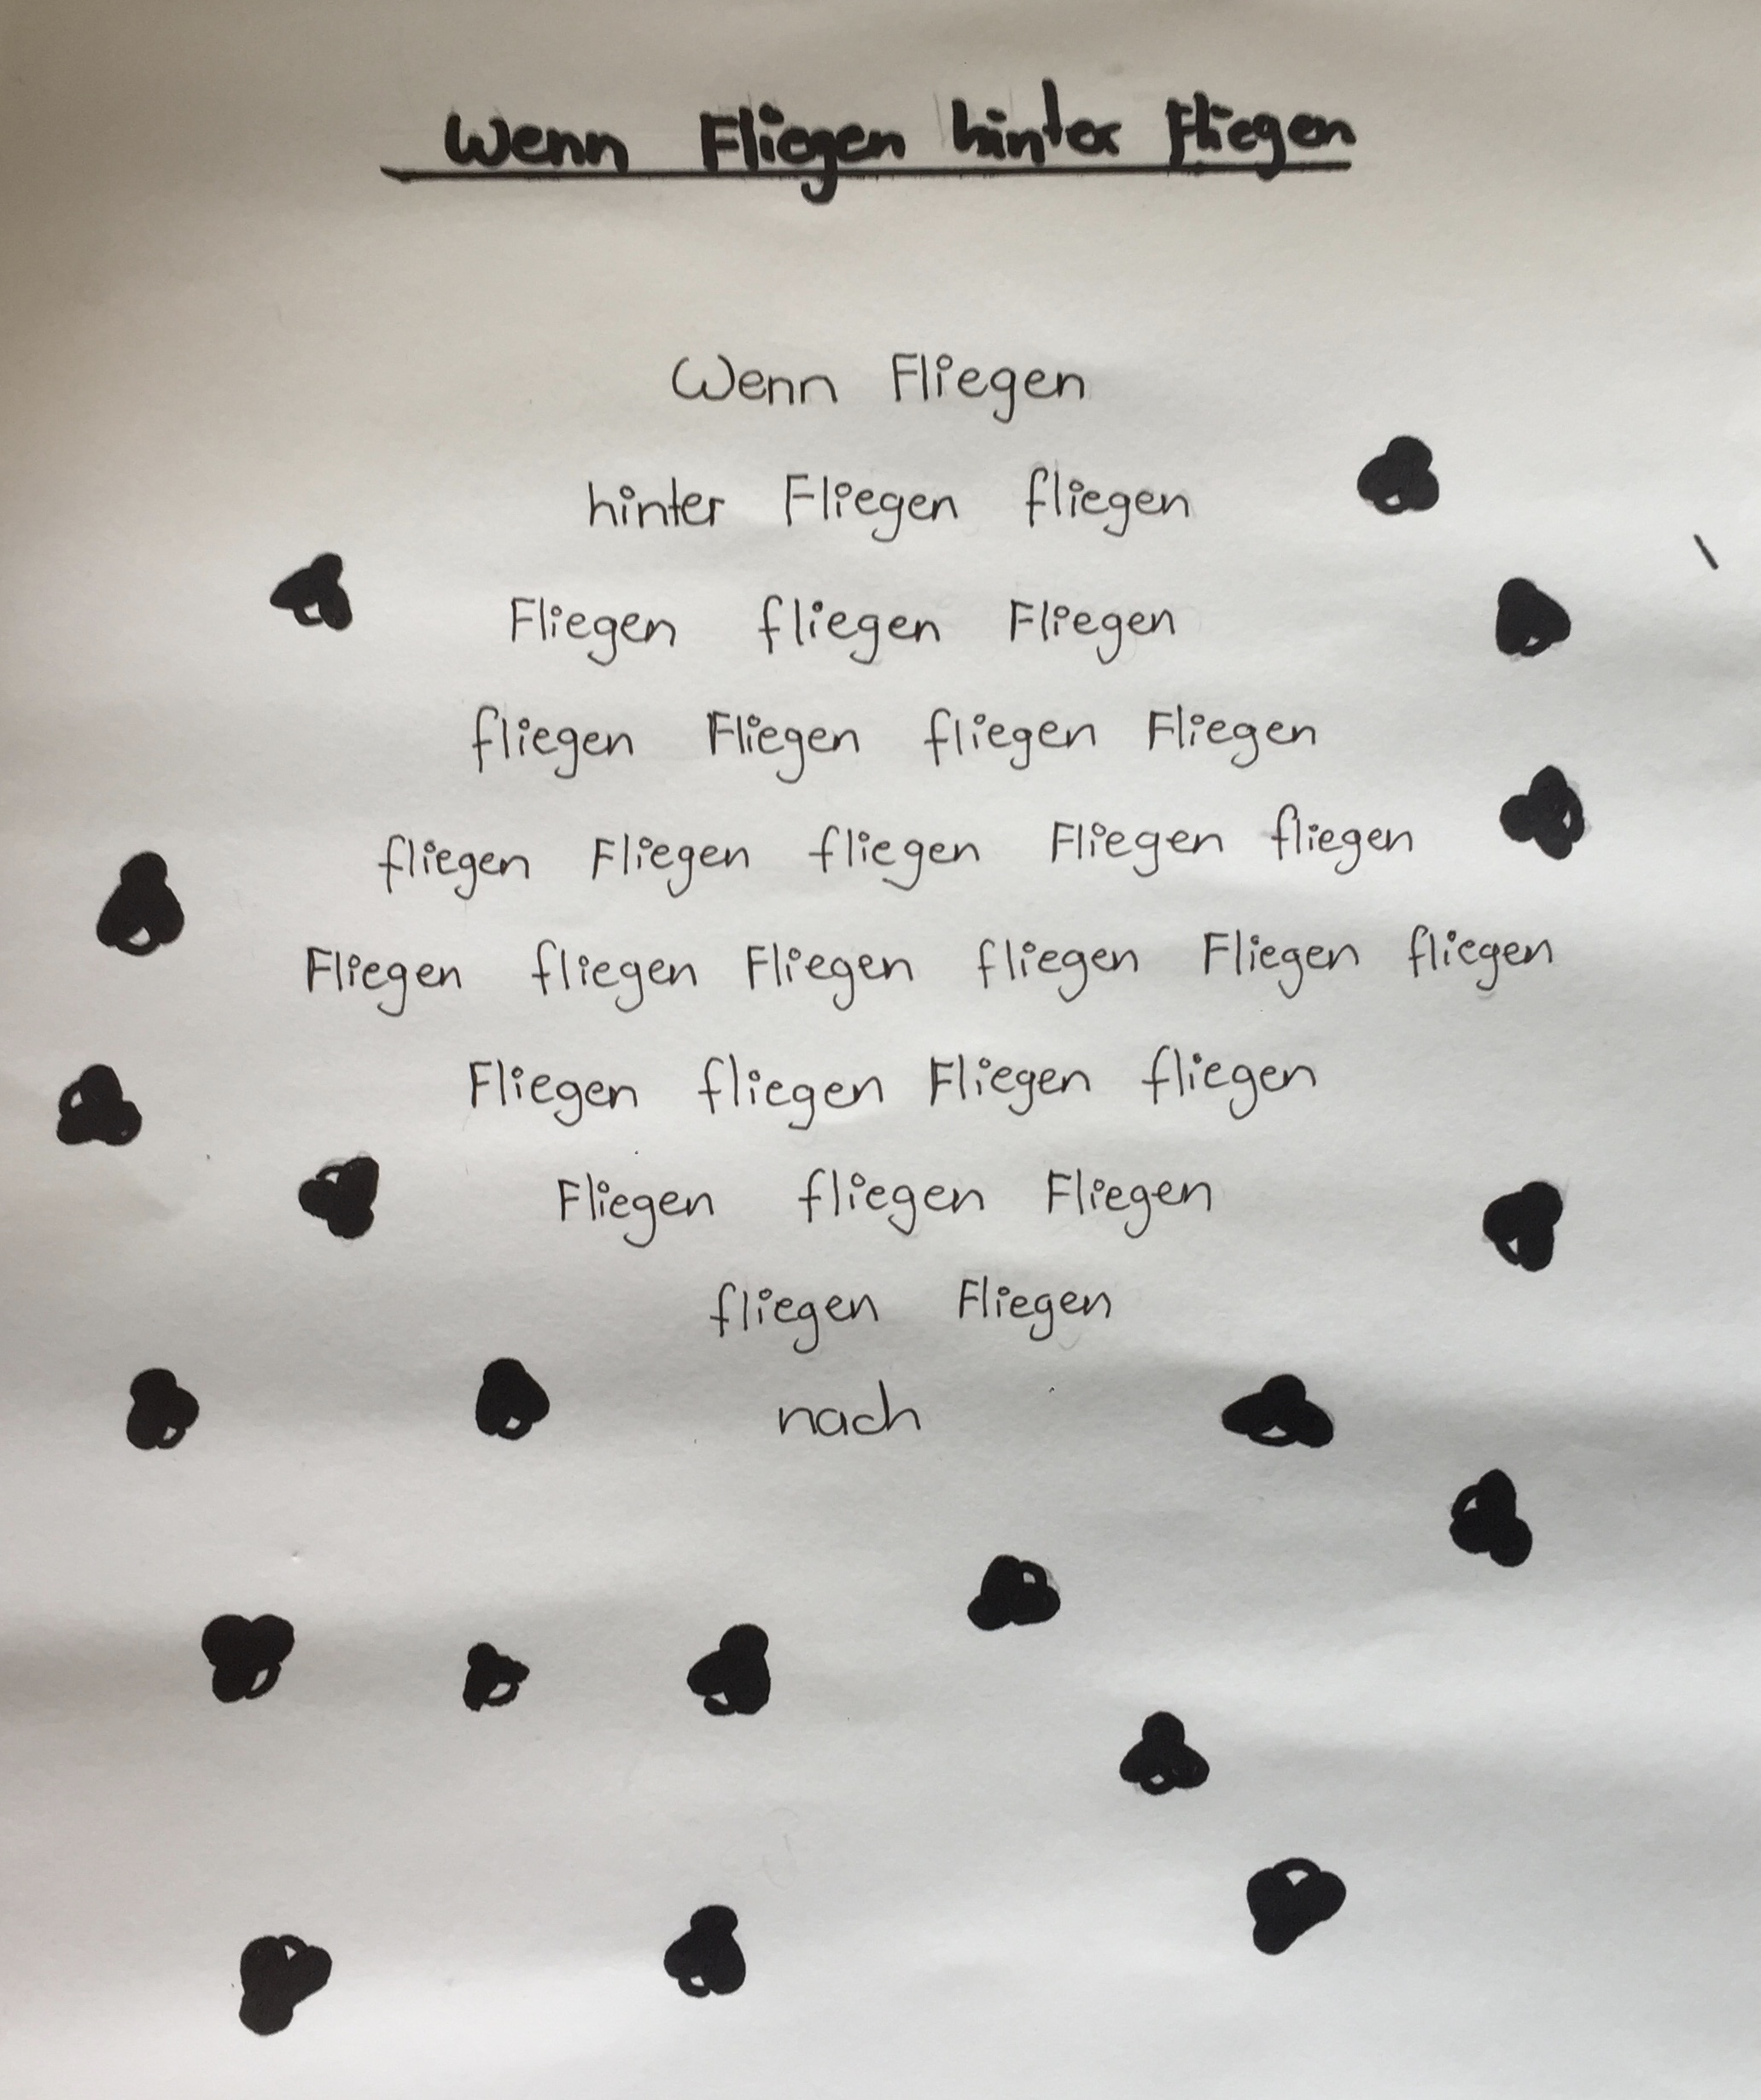 Wenn Fliegen hinter Fliegen
Wenn Fliegen
hinter Fliegen fliegen
Fliegen fliegen Fliegen
fliegen Fliegen fliegen Fliegen
fliegen Fliegen fliegen Fliegen fliegen
Fliegen fliegen Fliegen fliegen Fliegen fliegen
Fliegen fliegen Fliegen fliegen
Fliegen fliegen Fliegen
fliegen Fliegen
nach